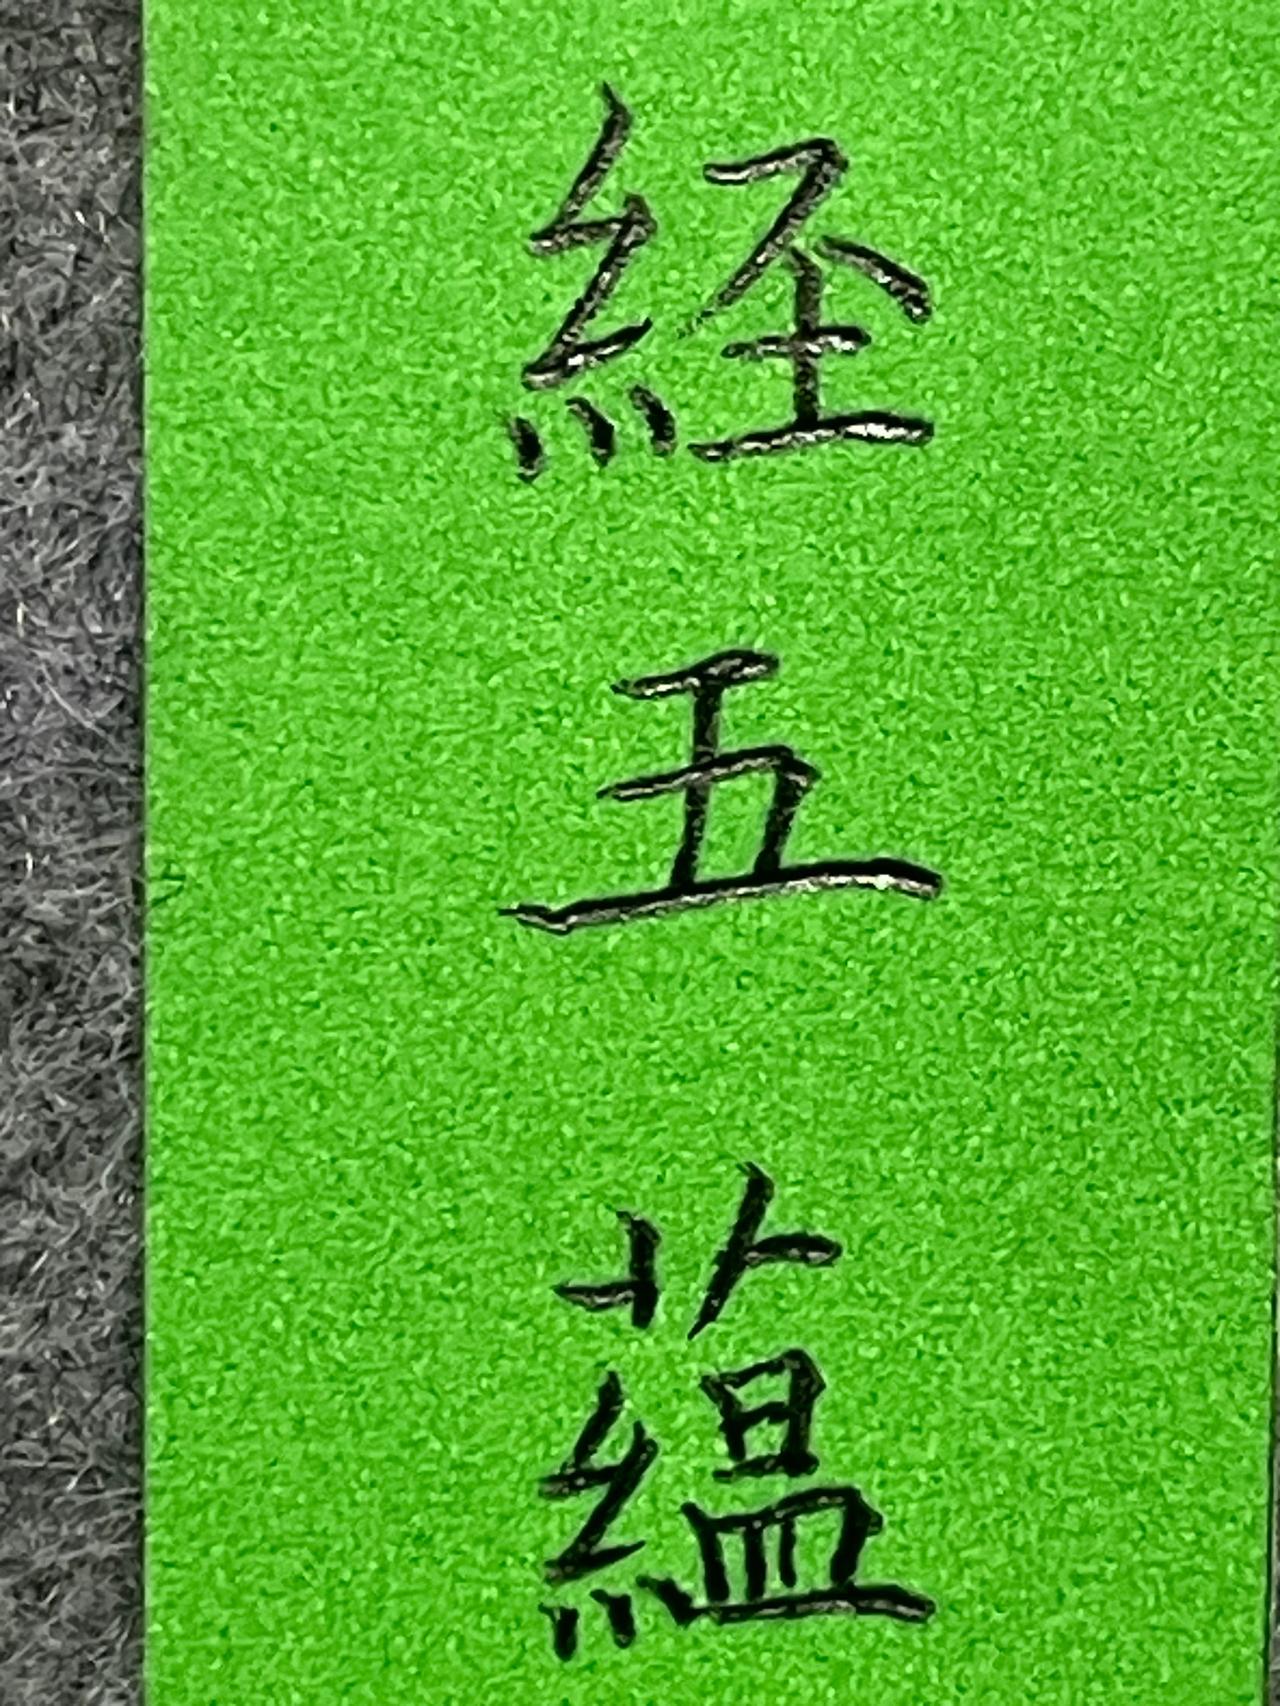 経五蘊